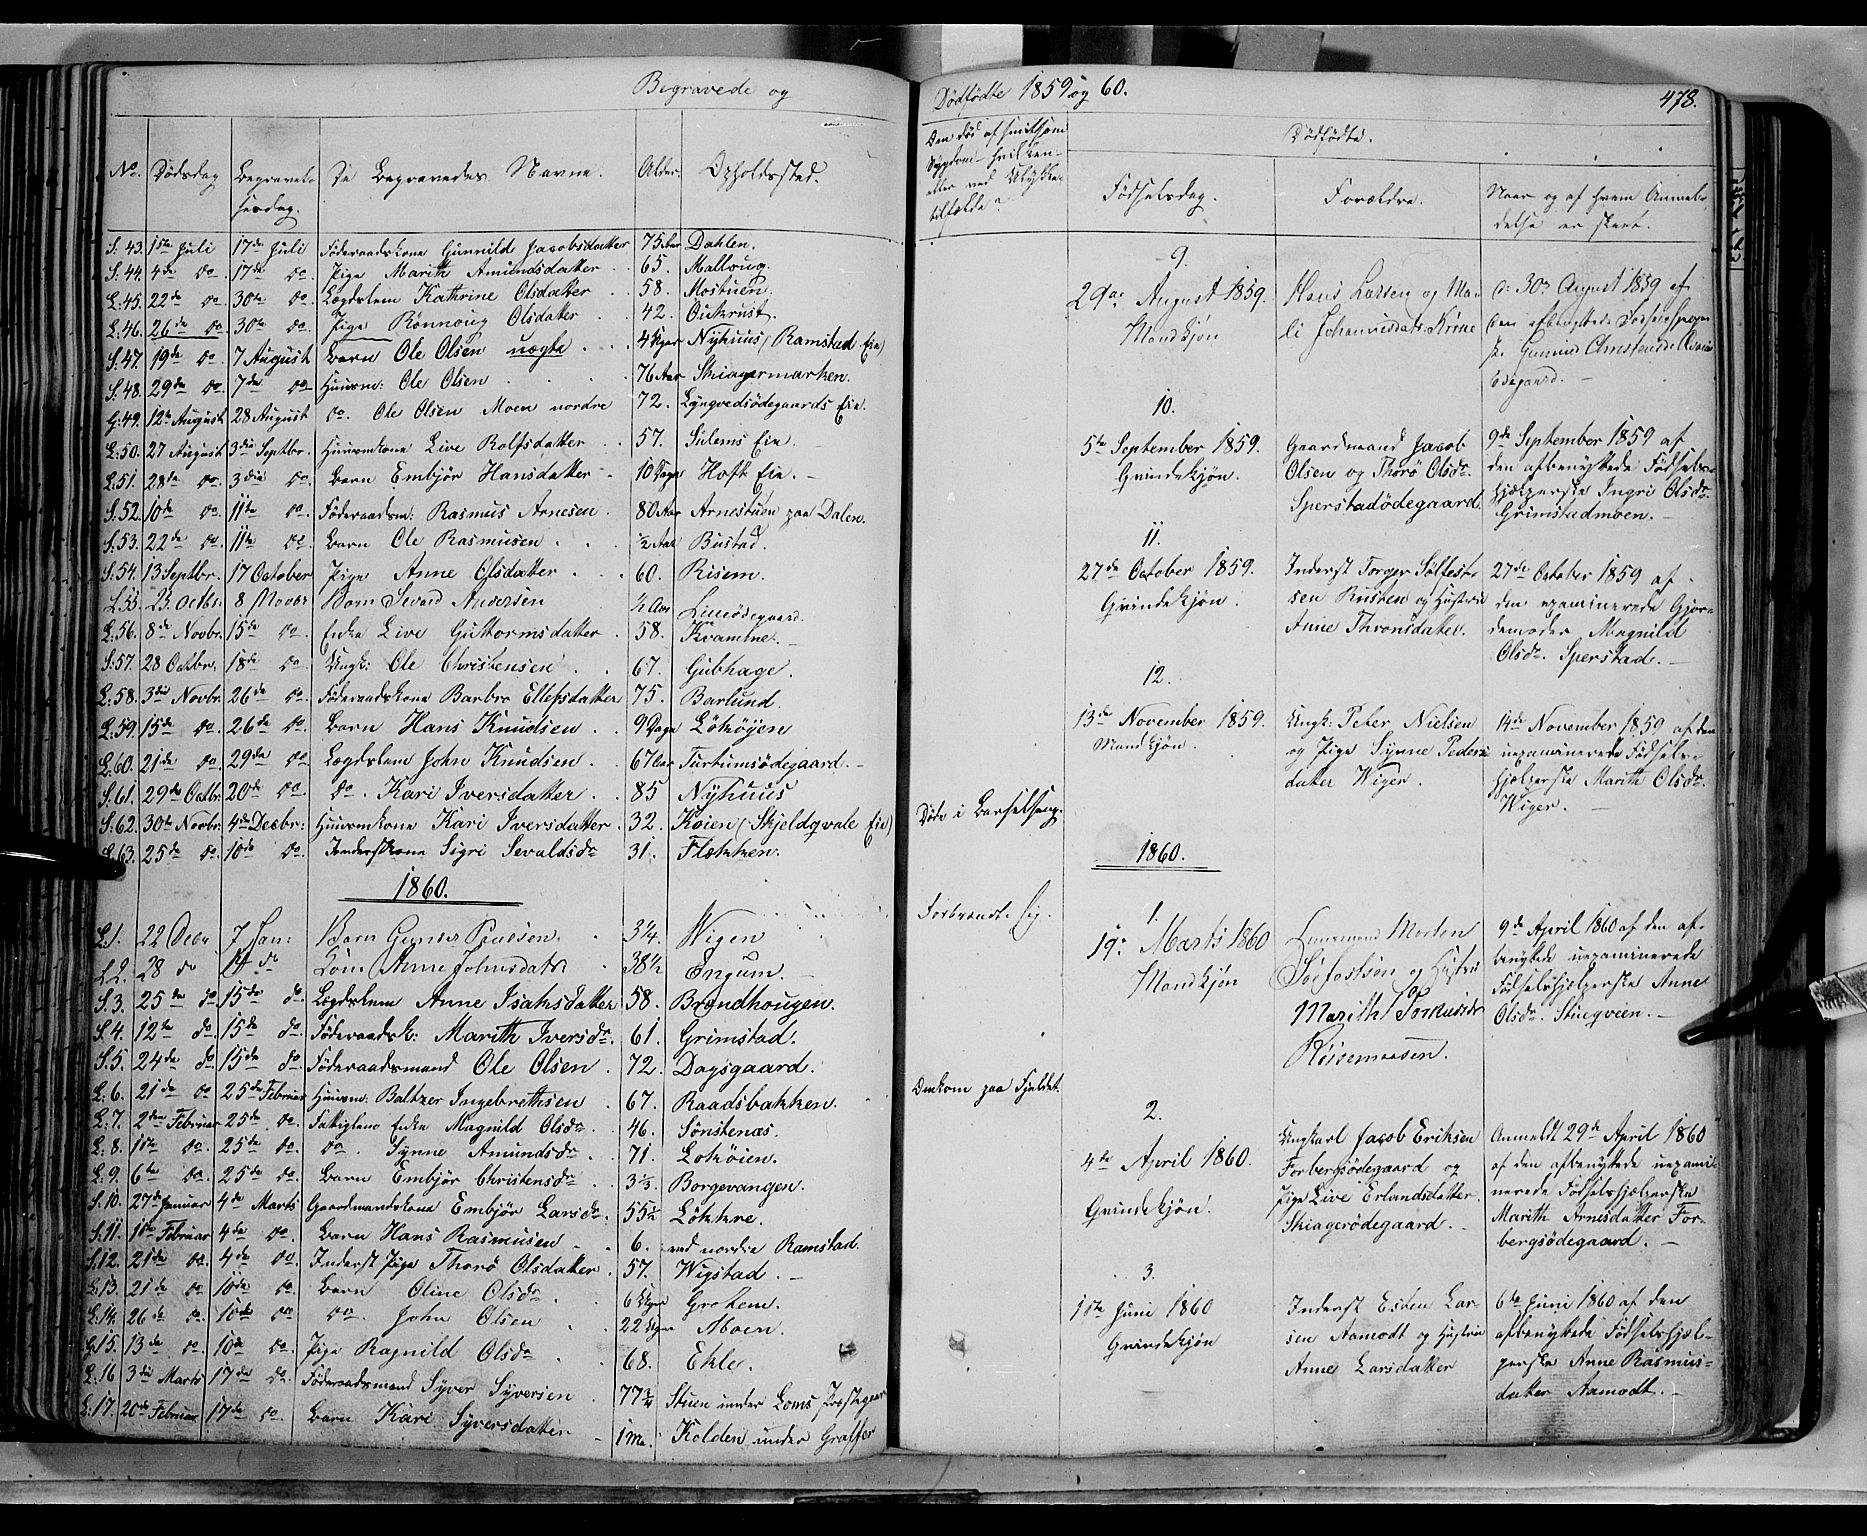 Begravede og
No. Dødsdag Begravelsesdag. De Begravedes Navne. Alder. Opholdssted.
S. 43. 1ste Juli 17de Juli Føderaadskone Gunnild Jacobsdatter 75 Aar Dahlen.
S. 44. 4de do. 17de do. Pige Marith Amundsdatter 65. Malloug.
L. 45. 22de do 30te do. Lægdslem Kathrine Olsdatter 58. Mostuen.
L. 46. 26de do 30te do. Pige Rønnoug Olsdatter 42. Qvekrust.
S. 47. 19de do. 7 August Barn Ole Olsen uægte 4 Uger Nyhuus (Ramstad Eie)
S. 48. 29de do 7de do Huusm: Ole Olsen 76 Aar Skiagermarken.
G. 49. 12te August 28 August do. Ole Olsen Moen nordre 72. Lyngvedsødegaards Eie.
L. 50. 27 August 3die Septbr. Huusmkone Live Rolfsdatter 57. Sulems Eie.
L. 51. 28de do. 3die do. Barn Embjør Hansdatter 10 Dage Hoft Eie.
S. 52. 10de do. 11te do. Føderaadsm: Rasmus Arnesen 80 Aar Arnestuen paa Dalen.
S. 53. 22de do. 11te do. Barn Ole Rasmusen 1/2 Aar Bustad.
S. 54. 13 Septbr. 17 October Pige Anne Olsdatter 60. Risem.
L. 55. 25. Octbr: 8 Novbr Barn Sevard Andersen 1/2 Aar
L. 56. 8de Novbr. 15de do Enke Live Guttormsdatter 58. Kvamme.
S. 57. 28 Octbr. 18de do. Ungk: Ole Christensen 67. Gubhage.
L. 58. 3die Novbr. 26de do. Føderaadskone Barbro Ellefsdatter 75. Barlund.
L. 59. 15de do 26de do. Barn Hans Knudsen 9 Dage Løkøyen
L. 60. 21de do. 29de do. Lægdslem John Knudsen 67 Aar Furtumsødegaard.
S. 61. 29de Octbr. 20de do. do. Kari Iversdatter 85 Nyhuus
S. 62. 30te Novbr. 4de Decbr: Huusmkone Kari Iversdatter 32. Køien (Skjeldqvale Eie)
L. 63. 25de do. 10de do. Inderstkone Sigri Sevaldsdr 31. Flækken.
1860.
L. 1. 22 Debr 7 Jan: Barn Paulsen. 3 1/4. Wigen
L. 2. 28 do 14 do Anne Johnsdatr 38 1/2 Engum.
S. 3. 25de do. 15de do. Lægdslem Anne Isaksdatter 58. Brandhougen.
S. 4. 12te do. 15de do. Føderaadsk: Marith Iversdr. 61. Grimstad.
S. 5. 24de do 15de do. Føderaadsmand Ole Olsen 72. Dagsgaard.
L. 6. 21de do 25de Februar Huusm: Baltzer Ingebrethsen 67. Raadsbakken.
L. 7. 2den Februar 25de do. Fattiglem Enke Magnild Olsdr 46. Sønstenæs.
L. 8. 11te do. 25de do. do. Synne Amundsdr 71. Løkøien.
L. 9. 6te do. 25de do. Barn Embjør Christensdr 3 1/3. Borgevangen.
S. 10. 27de Januar 4de Marts Gaardmandskone Embjør Larsdr. 55 1/2 Løkkre.
S. 11. 10de Februar 4de do. Barn Hans Rasmusen 6. ved nordre Ramstad.
S. 12. 21de do. 4de do. Inderst Pige Thorø Olsdatter 57. Wigstad.
L. 13. 21de do. 10de do. Barn Oline Olsdr 6 Uger Grotem.
L. 14. 26de do. 10de do do. John Olsen 22 Uger Moen.
G. 15. 13de do. 10de do. Pige Ragnild Olsdr 68. Ekle.
L. 16 3die Marts 17de do. Føderaadsmand Syver Syversen 77 3/4 Stuen under Loms Præstegaar
L. 17. 20de Februar 17de do. Barn Kari Syversdatter 1 m. Kolden under Graffer
Dødfødte 1859 og 60.
478.
Om død af smitsom Sygdom hvilken eller ved Ulykkestilfælde?
Dødfødte.
Fødselsdag. Forældre. Naar og af hvem Anmeldelse er skeet.
Døde i Barselseng.
Forbrændt sig.
Omkom paa Fjeldet
9.
29de August 1859.
Mandkjøn
Hans Larsen og Mali
Johannesdatr Kirne
d: 30. August 1859 af
den ubenyttede
10.
5te September 1859.
Qvindekjøn.
Gaardmand Jacob
Olsen og Thorø Olsdr.
Sperstadødegaard
9de September 1859 af
den afbenyttede Fødsels-
hjælperske Ingri Olsdr.
Grimstadmoen.
11.
27de October 1859.
Qvindekjøn.
Inderst Torger Sølfest-
sen Rusten og Hustrue
Anne Thronsdatter.
27de October 1859 af
den examinerede Gjor-
demoder Magnild
Olsdr. Sperstad.
12.
13de November 1859.
Mandkjøn.
Ungk: Peter Nielsen
og Pige Synne Peders-
datter Wiger.
14de November 1859 af den
uexaminerede Fødsels-
hjælperske Marith Olsdr.
Wiger.
1860.
1.
19. Marts 1860
Mandkjøn
Huusmand Morten
og Hustru
Marith
9de April 1860 af den af-
benytede uexaminerede
Fødselshjelperske Anne
Olsdr. Stuegveen.
2.
4de April 1860.
Qvindekjøn.
Ungkarl Jacob Eriksen
Forbergsødegaard og
Pige Live Erlandsdatter
Skiagerødegaard.
Anmeldt 29de April 1860
af den afbenyttede uexami-
nerede Fødselshjelperske
Marith Arnesdatter For-
bergsødegaard.
3.
11te Juni 1860
Qvindekjøn
Inderst Esten Lar-
sen Aamodt og Hustru
Anne Larsdatter
6te Juni 1860 af den
afbenyttede Fødselshjæl-
perske Anne Rasmus-
datter Aamodt.